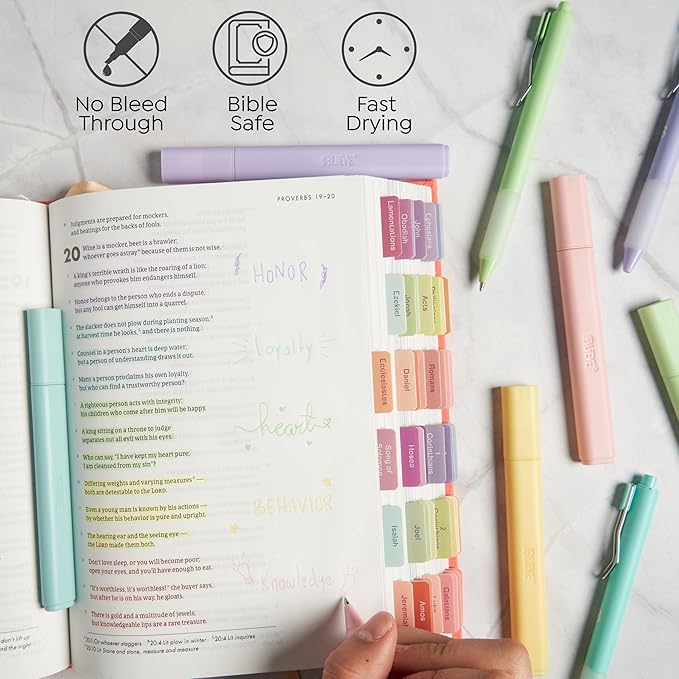 No Bleed
Through
Bible
Safe
Fast
Drying
BLIEVE
PROVERBS 19–20
Judgments are prepared for mockers,
and beatings for the backs of fools.
20 Wine is a mocker, beer is a brawler;
whoever goes astray because of them is not wise.
A king's terrible wrath is like the roaring of a lion;
anyone who provokes him endangers himself.
Honor belongs to the person who ends a dispute,
but any fool can get himself into a quarrel.
The slacker does not plow during planting season;
at harvest time he looks, and there is nothing.
Counsel in a person's heart is deep water;
but a person of understanding draws it out.
Many a person proclaims his own loyalty,
but who can find a trustworthy person?
A righteous person acts with integrity;
his children who come after him will be happy.
A king sitting on a throne to judge
separates out all evil with his eyes.
Who can say, "I have kept my heart pure;
I am cleansed from my sin"?
Differing weights and varying measures —
both are detestable to the LORD.
Even a young man is known by his actions —
by whether his behavior is pure and upright.
The hearing ear and the seeing eye —
the LORD made them both.
Don't love sleep, or you will become poor;
open your eyes, and you'll have enough to eat.
"It's worthless, it's worthless!" the buyer says,
but after he is on his way, he gloats.
There is gold and a multitude of jewels,
but knowledgeable lips are a rare treasure.
20:1 Or whoever staggers 20:4 Lit plow in winter 20:4 Lit inquires
20:10 Lit Stone and stone, measure and measure
HONOR
loyalty
heart
BEHAVIOR
Knowledge
Lamentations
Obadiah
John
Ephesians
Ezekiel
Jonah
Acts
Ecclesiastes
Daniel
Romans
Song of
Solomon
Hosea
1
Corinthians
Isaiah
Joel
2
Corinthians
Jeremiah
Amos
Luke
Galatians
don't lift up
and the night